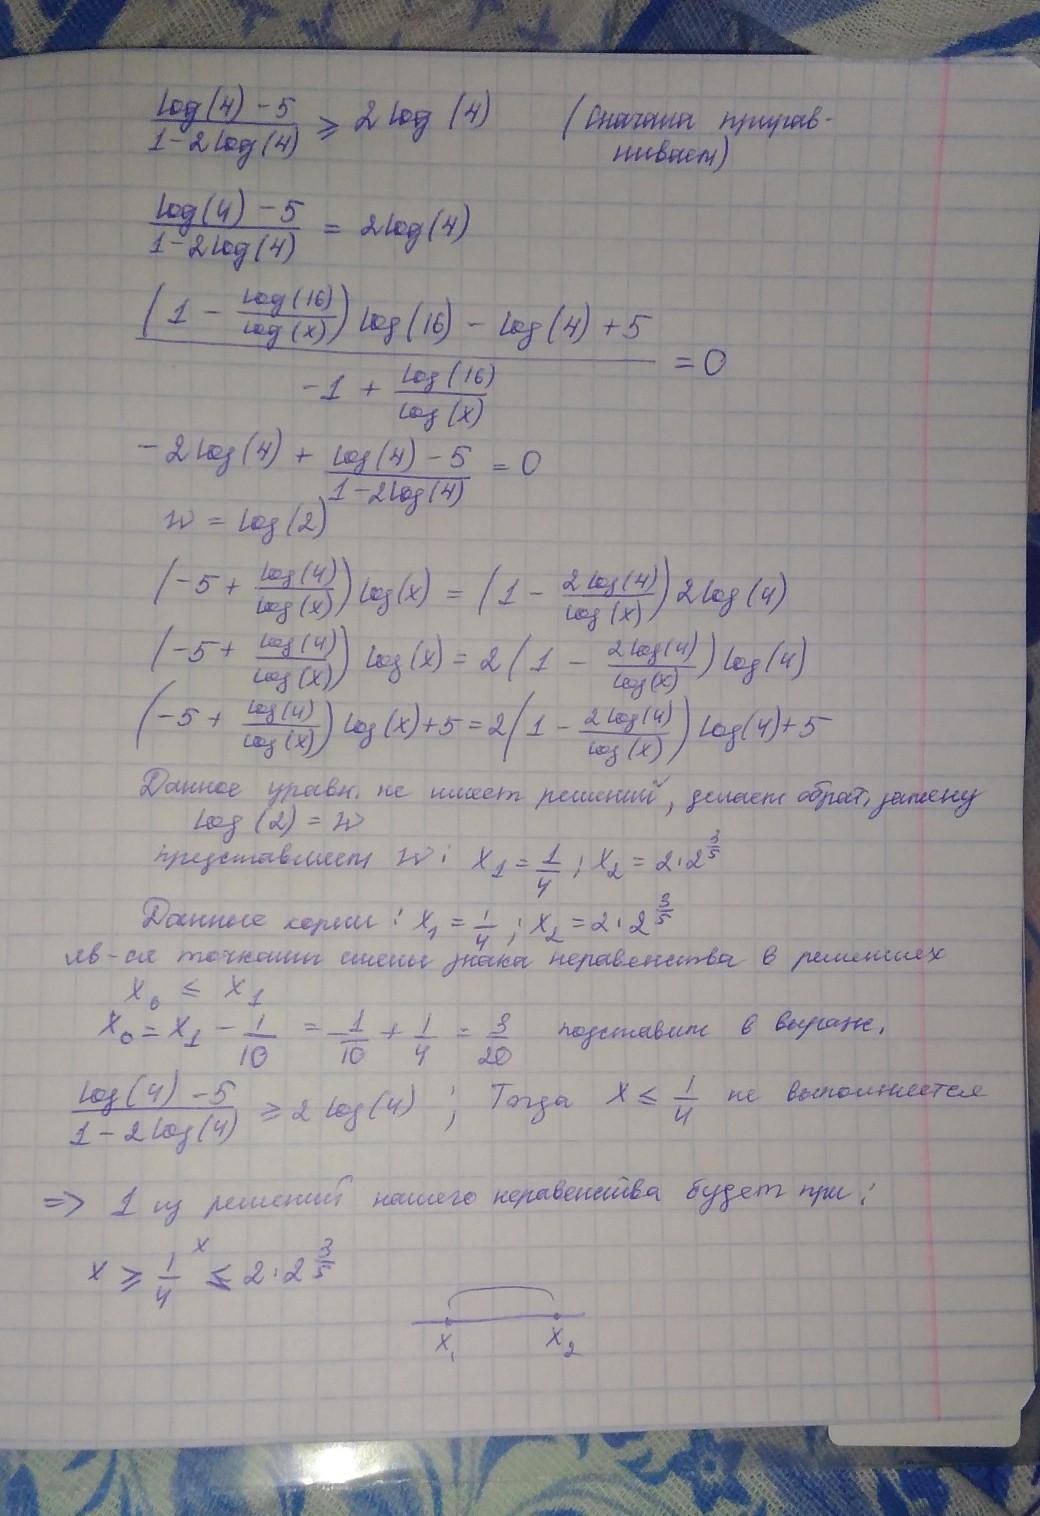 (log(4) - 5)/(1 - 2log(4)) ≥ 2log(4) (Сначала прирав-
ниваем)
(log(4) - 5)/(1 - 2log(4)) = 2log(4)
((1 - log(16)/log(x)) log(16) - log(4) + 5)/(-1 + log(16)/log(x)) = 0
-2log(4) + (log(4) - 5)/(1 - 2log(4)) = 0
w = log(2)
(-5 + log(4)/log(x)) log(x) = (1 - 2log(4)/log(x)) 2log(4)
(-5 + log(4)/log(x)) log(x) = 2(1 - 2log(4)/log(x)) log(4)
(-5 + log(4)/log(x)) log(x) + 5 = 2(1 - 2log(4)/log(x)) log(4) + 5
Данное уравн. не имеет решений, делаем обрат. замену
log(2) = w
представляем w: x₁ = 1/4; x₂ = 2·2^(3/5)
Данные корни: x₁ = 1/4; x₂ = 2·2^(3/5)
яв-ся точками смены знака неравенства в решениях
x₀ ≤ x₁
x₀ = x₁ - 1/10 = 1/10 + 1/4 = 3/20 подставим в выраж.
(log(4) - 5)/(1 - 2log(4)) ≥ 2log(4); Тогда x ≤ 1/4 не выполняется
=> 1 из решений нашего неравенства будет при:
x ≥ 1/4 x ≤ 2·2^(3/5)
x₁ x₂